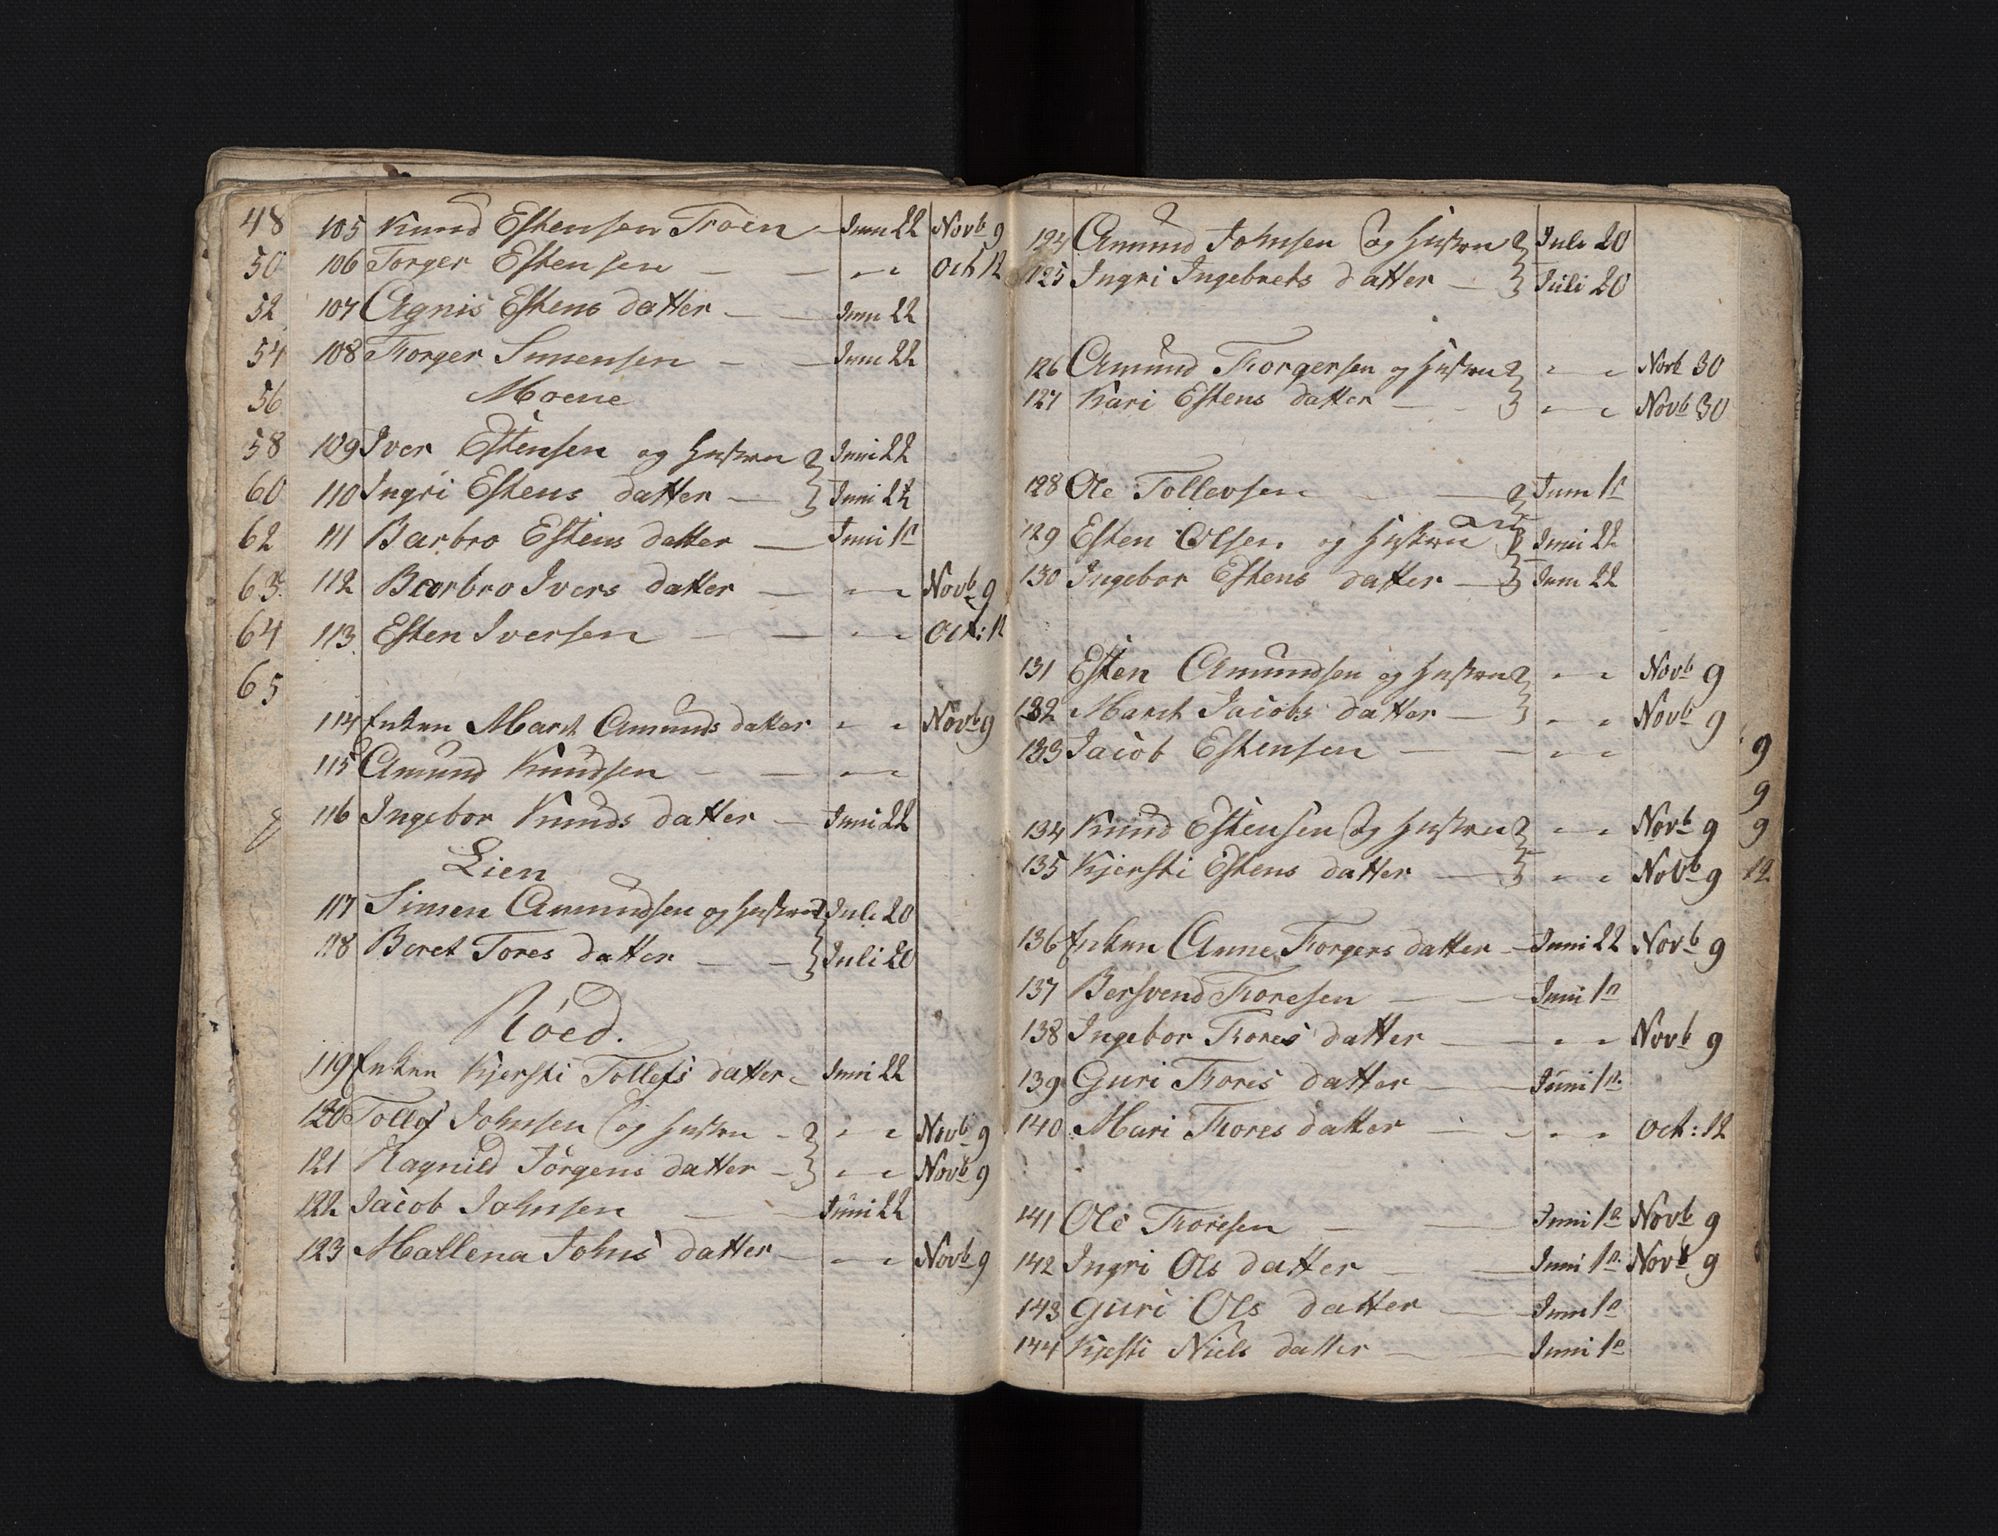 48
50
52
54
56
58
60
62
63.
64
65
105 Knud Estensen Troen — Juni 22 Novb 9
106 Torger Estensen — — — Oct 12
107 Agnis Estens datter — — Juni 22
108 Torger Simensen — — Juni 22
Moene
109 Iver Estensen og Hustru } Juni 22
110 Ingri Estens datter — } Juni 22
111 Barbro Estens datter — Juni 1ª
112 Barbro Ivers datter — — Novb 9
113. Esten Iversen — — — Oct: 12
114 Enken Marit Amunds datter — Novb 9
115 Amund Knudsen — — —
116 Ingebor Knuds datter — Juni 22
Lien
117 Simen Amundsen og Hustru } Juli 20
118 Beret Tores datter — — } Juli 20
Röed.
119 Enken Kjersti Tollefs datter — Juni 22
120 Tollof Johnsen og Hustru - } — Novb 9
121 Ragnild Jörgens datter - } — Novb 9
122 Jacob Johnsen — — Juni 22
123 Mallena Johns datter — — Novb 9
124 Amund Johnsen og Hustru } Juli 20
125 Ingri Ingebrets datter — } Juli 20
126 Amund Torgersen og Hustru } — Novb 30
127 Kari Estens datter — - } — Novb 30
128 Ole Tollevsen — } Juni 1ª
129 Esten Olsen og Hustru } Juni 22
130 Ingebor Estens datter — } Juni 22
131 Esten Amundsen og Hustru } — Novb 9
132 Marit Jacobs datter — } — Novb 9
133 Jacob Estensen — — —
134 Knud Estensen og Hustru } — Novb 9
135 Kjersti Estens datter — } — Novb 9
136 Enken Anne Torgers datter — Juni 22 Novb 9
137 Bersvend Toresen — — Juni 1ª
138 Ingebor Tores datter — — Novb 9
139 Guri Tores datter — — Juni 1ª.
140 Mari Tores datter — — — Oct: 12
141 Ole Toresen — — Juni 1ª Novb 9
142 Ingri Ols datter — — Juni 1ª. Novb 9
143 Guri Ols datter — Juni 1ª
144 Kjesti Niels datter — — Juni 1ª
9
9
9
12